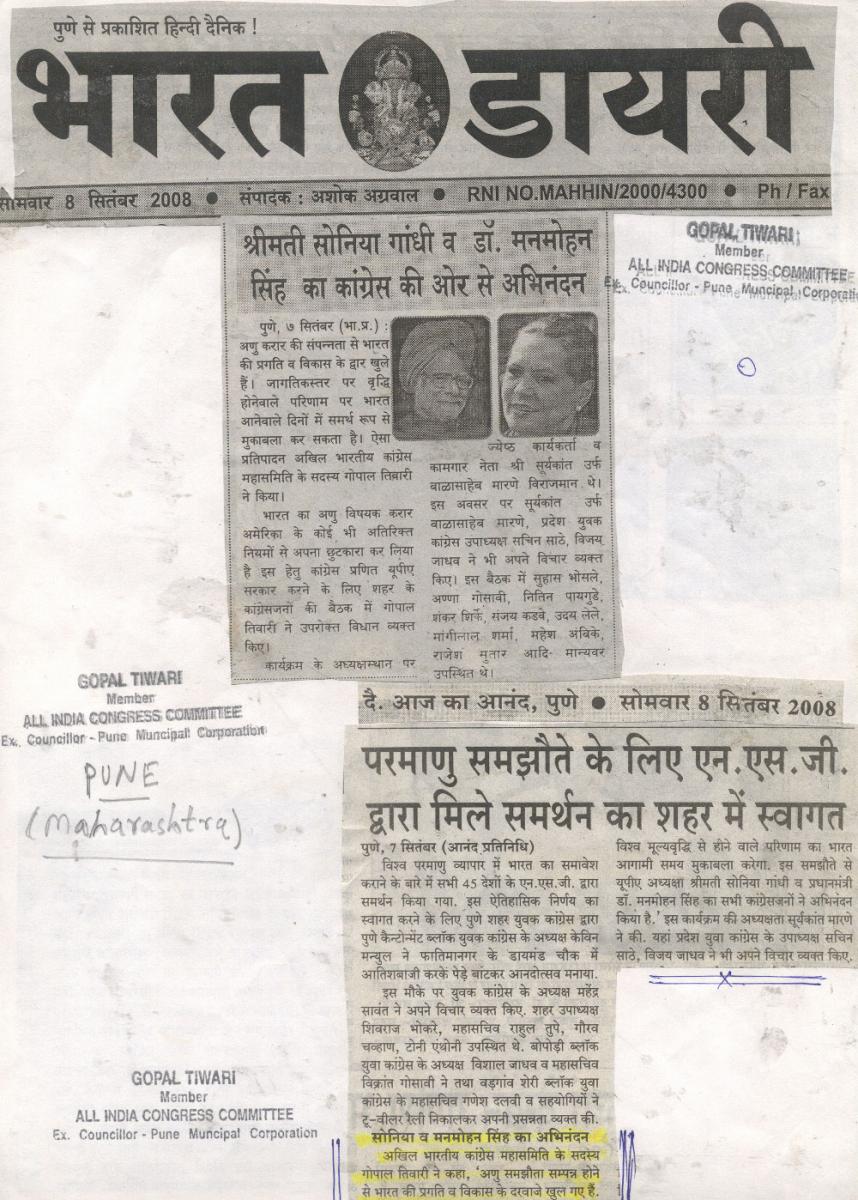 पुणे से प्रकाशित हिन्दी दैनिक !
भारत डायरी
सोमवार 8 सितंबर 2008 ● संपादक : अशोक अग्रवाल ● RNI NO.MAHHIN/2000/4300 ● Ph / Fax
श्रीमती सोनिया गांधी व डॉ. मनमोहन
सिंह का कांग्रेस की ओर से अभिनंदन
पुणे, ७ सितंबर (भा.प्र.) :
अणु करार की संपन्नता से भारत
की प्रगति व विकास के द्वार खुले
हैं। जागतिकस्तर पर वृद्धि
होनेवाले परिणाम पर भारत
आनेवाले दिनों में समर्थ रूप से
मुकाबला कर सकता है। ऐसा
प्रतिपादन अखिल भारतीय कांग्रेस
महासमिति के सदस्य गोपाल तिवारी
ने किया।
भारत का अणु विषयक करार
अमेरिका के कोई भी अतिरिक्त
नियमों से अपना छुटकारा कर लिया
है इस हेतु कांग्रेस प्रणित यूपीए
सरकार करने के लिए शहर के
कांग्रेसजनों की बैठक में गोपाल
तिवारी ने उपरोक्त विधान व्यक्त
किए।
कार्यक्रम के अध्यक्षस्थान पर
ज्येष्ठ कार्यकर्ता व
कामगार नेता श्री सूर्यकांत उर्फ
बाळासाहेब मारणे विराजमान थे।
इस अवसर पर सूर्यकांत उर्फ
बाळासाहेब मारणे, प्रदेश युवक
कांग्रेस उपाध्यक्ष सचिन साठे, विजय
जाधव ने भी अपने विचार व्यक्त
किए। इस बैठक में सुहास भोसले,
अण्णा गोसावी, नितिन पायगुडे,
शंकर शिर्के, संजय कडवे, उदय लेले,
मांगीलाल शर्मा, महेश अंबिके,
राजेश मुतार आदि मान्यवर
उपस्थित थे।
GOPAL TIWARI
Member
ALL INDIA CONGRESS COMMITTEE
Ex. Councillor - Pune Muncipal Corporation
GOPAL TIWARI
Member
ALL INDIA CONGRESS COMMITTEE
Ex. Councillor - Pune Muncipal Corporation
PUNE
(Maharashtra)
दै. आज का आनंद, पुणे ● सोमवार 8 सितंबर 2008
परमाणु समझौते के लिए एन.एस.जी.
द्वारा मिले समर्थन का शहर में स्वागत
पुणे, 7 सितंबर (आनंद प्रतिनिधि)
विश्व परमाणु व्यापार में भारत का समावेश
कराने के बारे में सभी 45 देशों के एन.एस.जी. द्वारा
समर्थन किया गया. इस ऐतिहासिक निर्णय का
स्वागत करने के लिए पुणे शहर युवक कांग्रेस द्वारा
पुणे कैन्टोन्मेंट ब्लॉक युवक कांग्रेस के अध्यक्ष केविन
मन्युल ने फातिमानगर के डायमंड चौक में
आतिशबाजी करके पेड़े बांटकर आनदोत्सव मनाया.
इस मौके पर युवक कांग्रेस के अध्यक्ष महेंद्र
सावंत ने अपने विचार व्यक्त किए. शहर उपाध्यक्ष
शिवराज भोकरे, महासचिव राहुल तुपे, गौरव
चव्हाण, टोनी एंथोनी उपस्थित थे. बोपोड़ी ब्लॉक
युवा कांग्रेस के अध्यक्ष विशाल जाधव व महासचिव
विक्रांत गोसावी ने तथा वड़गांव शेरी ब्लॉक युवा
कांग्रेस के महासचिव गणेश दलवी व सहयोगियों ने
टू-वीलर रैली निकालकर अपनी प्रसन्नता व्यक्त की.
सोनिया व मनमोहन सिंह का अभिनंदन
अखिल भारतीय कांग्रेस महासमिति के सदस्य
गोपाल तिवारी ने कहा, 'अणु समझौता सम्पन्न होने
से भारत की प्रगति व विकास के दरवाजे खुल गए हैं.
विश्व मूल्यवृद्धि से होने वाले परिणाम का भारत
आगामी समय मुकाबला करेगा. इस समझौते से
यूपीए अध्यक्षा श्रीमती सोनिया गांधी व प्रधानमंत्री
डॉ. मनमोहन सिंह का सभी कांग्रेसजनों ने अभिनंदन
किया है.' इस कार्यक्रम की अध्यक्षता सूर्यकांत मारणे
ने की. यहां प्रदेश युवा कांग्रेस के उपाध्यक्ष सचिन
साठे, विजय जाधव ने भी अपने विचार व्यक्त किए.
GOPAL TIWARI
Member
ALL INDIA CONGRESS COMMITTEE
Ex. Councillor - Pune Muncipal Corporation